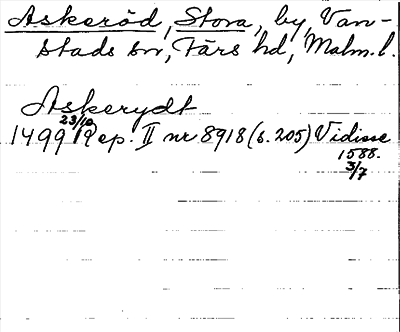 Askeröd, Stora, by, Van-
stads sn, Färs hd, Malm. l.
Askerydt
1499 23/10 Rep. II nr 8918 (s. 205) Vidisse
1588.
3/7